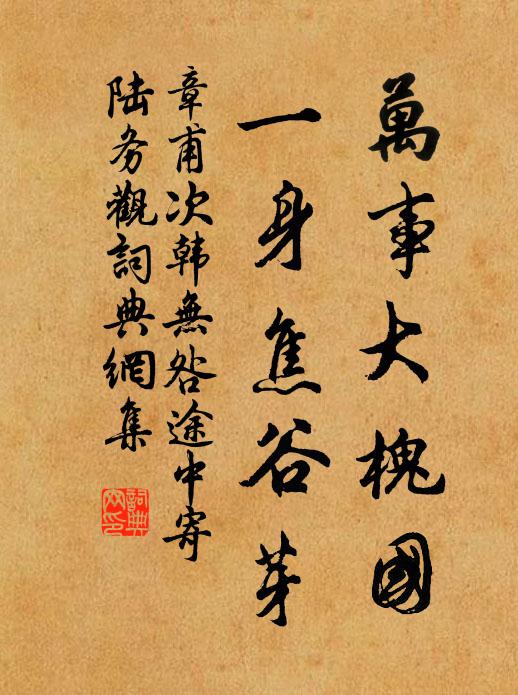 萬事大槐國
一身焦谷芽
章甫次韩無咎途中寄
陆务觀詞典網集
詞典
网印